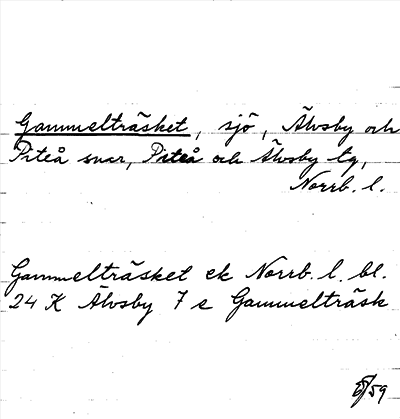 Gammelträsket, sjö, Älvsby och
Piteå snar, Piteå och Älvsby tg,
Norrb. l.
Gammelträsket ek Norrb. l. bl.
24 K Älvsby 7 e Gammelträsk
/59